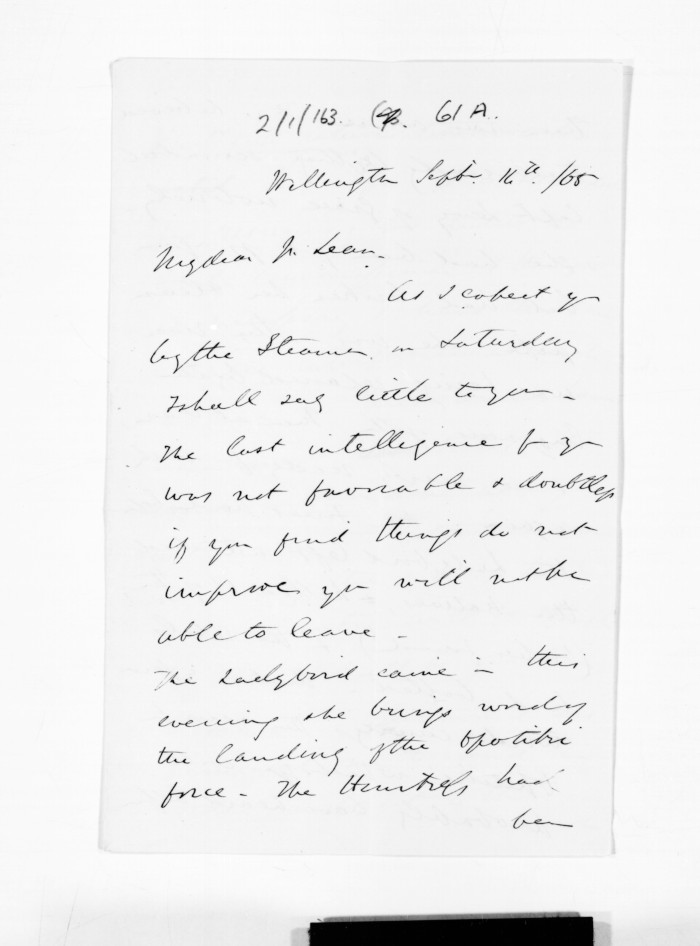 2/1/163. 61A.
Wellington Septr. 16th. /65
My dear McLean.
As I expect yr
by the Steamer on Saturday
I shall say little to you -
The last intelligence fr yr
was not favorable & doubtless
if you find things do not
improve yr will not be
able to leave -
The Ladybird came in this
evening she brings word of
the landing of the Opotiki
force - The Huntress had
been